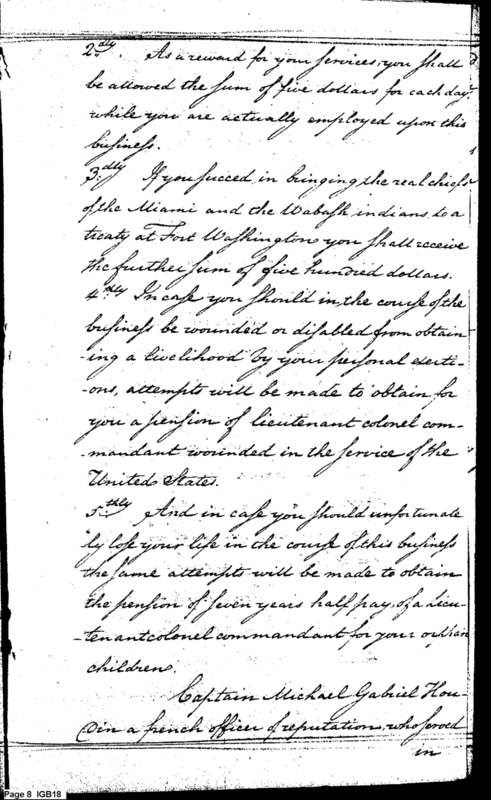 2.dly As a reward for your services, you shall
be allowed the sum of five dollars for each day,
while you are actually employed upon this
business.
3.dly If you succeed in bringing the real chiefs
of the Miami and the Wabash indians to a
treaty at Fort Washington you shall receive
the further sum of five hundred dollars.
4.thly In case you should in the course of the
business be wounded or disabled from obtain-
-ing a livelihood by your personal exerti-
-ons, attempts will be made to obtain for
you a pension of lieutenant colonel com-
-mandant wounded in the service of the
United States.
5.thly And in case you should unfortunate
ly lose your life in the course of this business
the same attempts will be made to obtain
the pension of seven years half pay, of a Lieu-
-tenant colonel commandant for your orphan
children.
Captain Michael Gabriel Hou-
din a french officer of reputation, who served
in
Page 8 IGB18